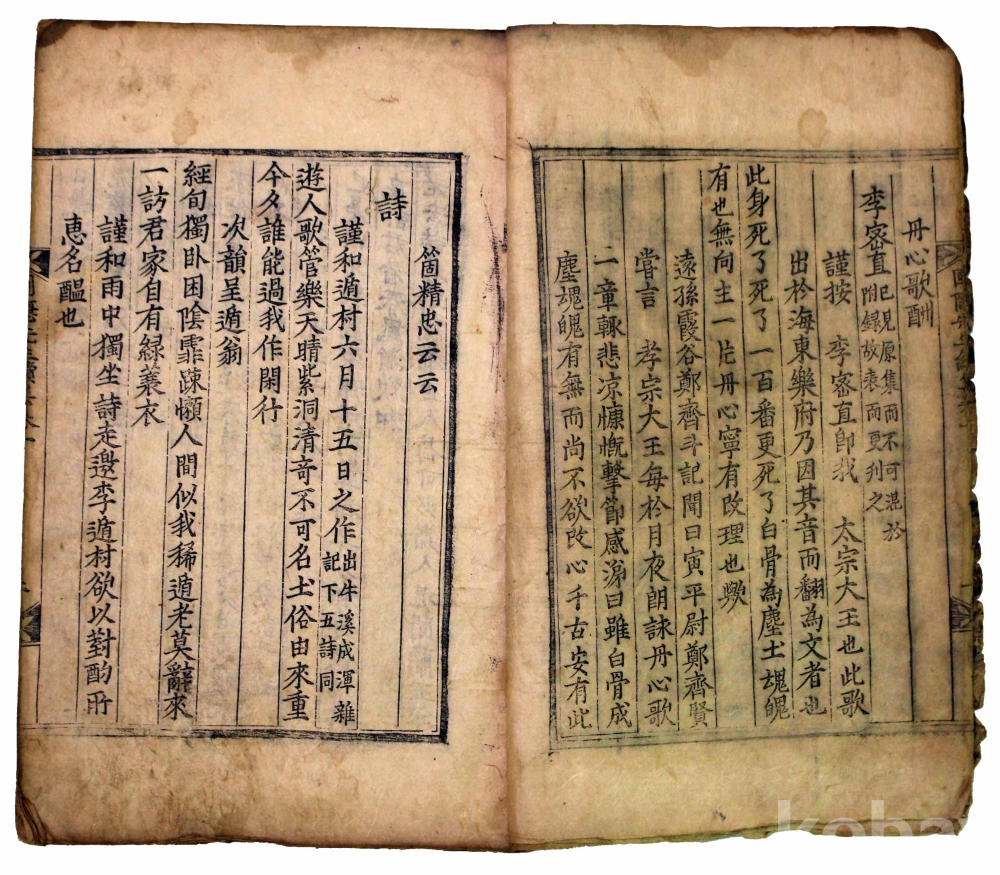 丹心歌酬
李宻直 已見原集而不可混於
附錄故表而更列之
謹按 李宻直卽我 太宗大王也此歌
出於海東樂府乃因其音而翻為文者也
此身死了死了一百番更死了白骨為塵土魂魄
有也無向主一片丹心寧有改理也歟
遠孫霞谷鄭齊斗記聞曰寅平尉鄭齊賢
甞言 孝宗大王每於月夜朗詠丹心歌
二章輒悲凉慷慨擊節感涕曰雖白骨成
塵魂魄有無而尚不欲改心千古安有此
箇精忠云云
詩
謹和遁村六月十五日之作 出牛溪成渾雜
記下五詩同
遊人歌管樂天晴紫洞清竒不可名土俗由來重
今夕誰能過我作閑行
次韻呈遁翁
經旬獨卧困陰霏踈懶人間似我稀遁老莫辭來
一訪君家自有緑蓑衣
謹和雨中獨坐詩走邀李遁村欲以對酌所
恵名醞也
koba